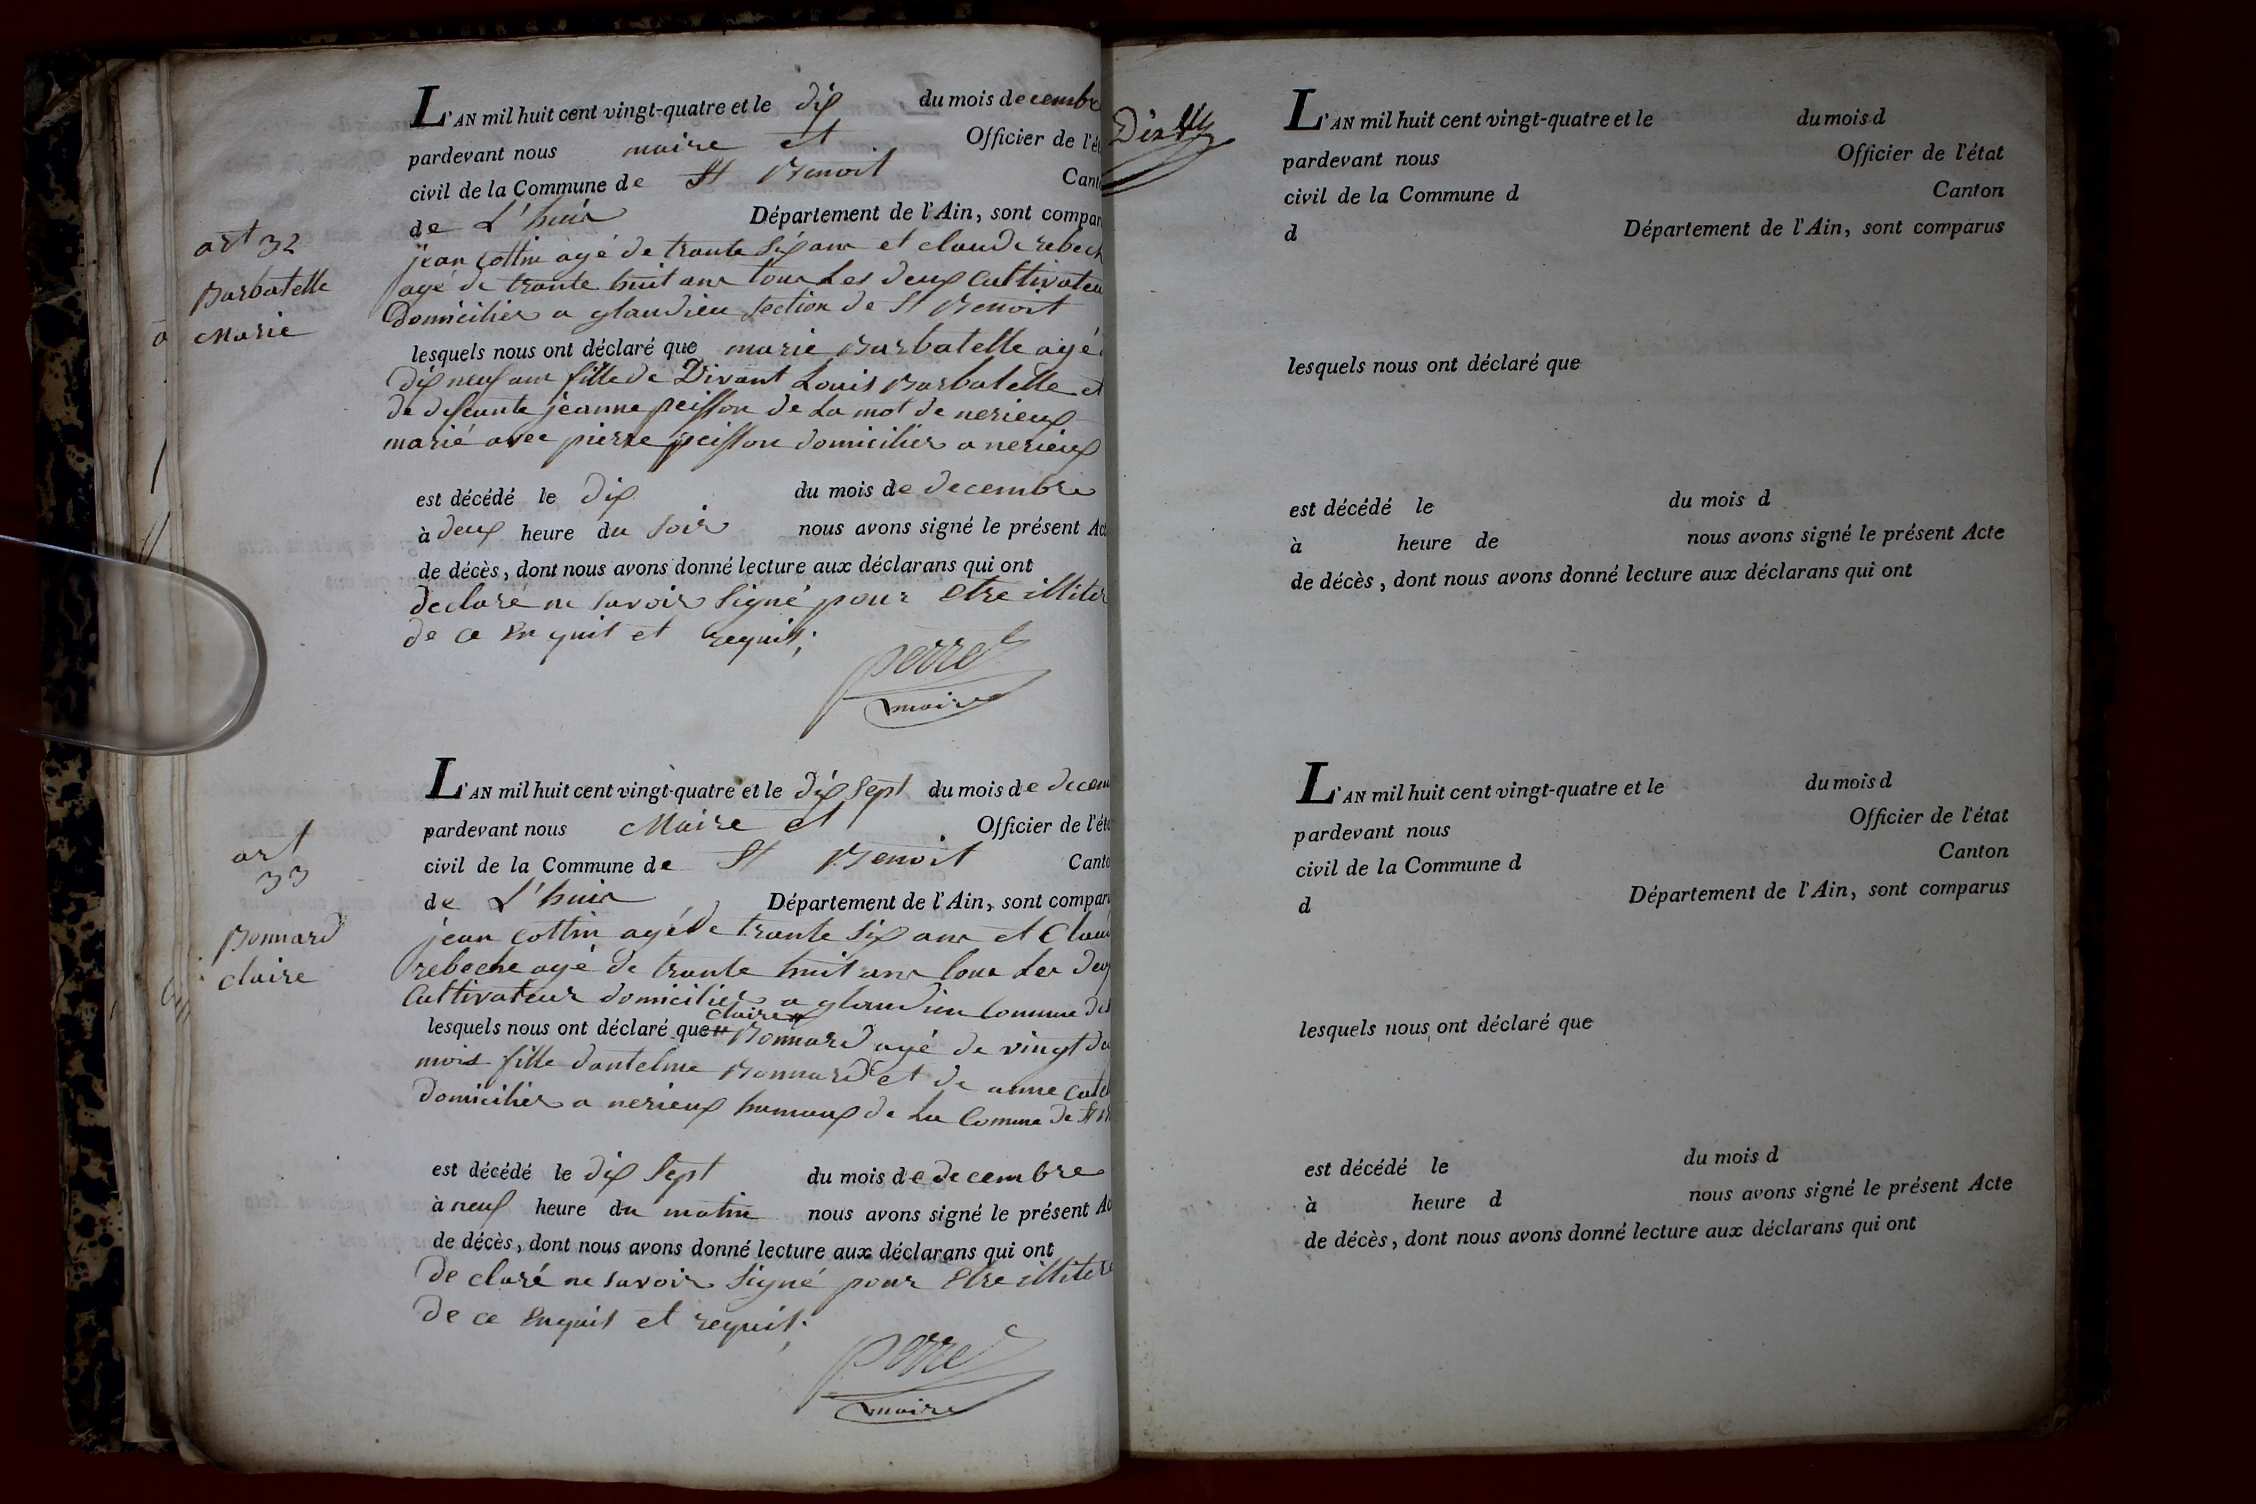 L'AN mil huit cent vingt-quatre et le dix du mois decembre
pardevant nous maire et Officier de l'ét
civil de la Commune de St Benoit Cant
de L'huis Département de l'Ain, sont compar
art 32
Barbatelle
Marie
jean Cottin agé de trante six ans et claude rebech
agé de trante huit ans tous Les deux Cultivateu
domicilies a glandieu section de St Benoit
lesquels nous ont déclaré que marie Barbatelle agé
dix neuf ans fille de Louis Barbatelle et
de defeunte jeanne peisson de La mot de nerieux
marié avec pierre peisson domicilies a nerieux
est décédé le dix du mois de decembre
à deux heure du soir nous avons signé le présent Ac
de décès, dont nous avons donné lecture aux déclarans qui ont
declaré ne savoir signé pour etre illiter
de ce Enquit et requit;
perret
maire
L'AN mil huit cent vingt-quatre et le dix sept du mois de decem
pardevant nous Maire et Officier de l'éta
civil de la Commune de St Benoit Canto
de L'huis Département de l'Ain, sont comparu
art
33
Bonnard
claire
jean Cottin agé de trante six ans et Claud
rebeche agé de trante huit ans tous Les deux
Cultivateur domicilies a glandieu Commune de
claire
lesquels nous ont déclaré que Bonnard agé de vingt
mois fille dantelme Bonnard et de anne
domicilies a nerieux hamaux de La Commune de St
est décédé le dix sept du mois de decembre
à neuf heure du matin nous avons signé le présent Ac
de décès, dont nous avons donné lecture aux déclarans qui ont
declaré ne savoir signé pour etre illitere
de ce Enquit et requit;
perret
maire
L'AN mil huit cent vingt-quatre et le du mois d
pardevant nous Officier de l'état
civil de la Commune d Canton
d Département de l'Ain, sont comparus
lesquels nous ont déclaré que
est décédé le du mois d
à heure de nous avons signé le présent Acte
de décès, dont nous avons donné lecture aux déclarans qui ont
L'AN mil huit cent vingt-quatre et le du mois d
pardevant nous Officier de l'état
civil de la Commune d Canton
d Département de l'Ain, sont comparus
lesquels nous ont déclaré que
est décédé le du mois d
à heure d nous avons signé le présent Acte
de décès, dont nous avons donné lecture aux déclarans qui ont